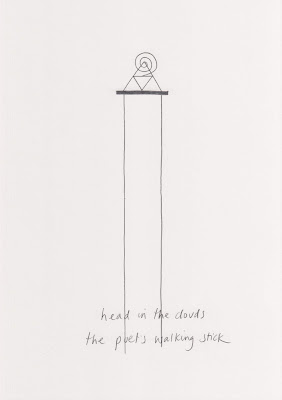 head in the clouds
the poet's walking stick